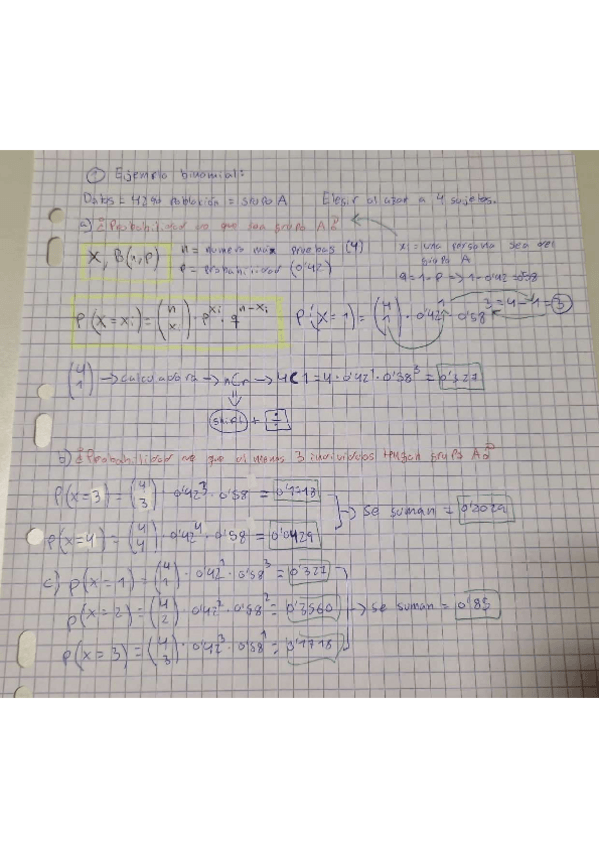 ① Ejemplo binomial:
Datos = 42% población = grupo A Elegir al azar a 4 sujetos.
a) ¿Probabilidad de que sea grupo A?
X, B(n,p) n = numero máx pruebas (4) xi = una persona sea del
p = probabilidad (0'42) grupo A
q = 1 - p => 1 - 0'42 = 0'58
P(X = xi) = (n x) · p^xi · q^n-xi P(X = 1) = (4 1) · 0'42^1 · 0'58 3 = 4 - 1 = 3
(4 1) → calculadora → nCr → 4C1 = 4 · 0'42^1 · 0'58^3 = 0'327
shift + ÷
b) ¿Probabilidad de que al menos 3 individuos tengan grupo A?
P(x = 3) = (4 3) · 0'42^3 · 0'58 = 0'1718
→ se suman = 0'2029
P(x = 4) = (4 4) · 0'42^4 · 0'58 = 0'0429
c) P(x = 1) = (4 1) · 0'42^1 · 0'58^3 = 0'327
P(x = 2) = (4 2) · 0'42^2 · 0'58^2 = 0'3560 → se suman = 0'85
P(x = 3) = (4 3) · 0'42^3 · 0'58^1 = 0'1718